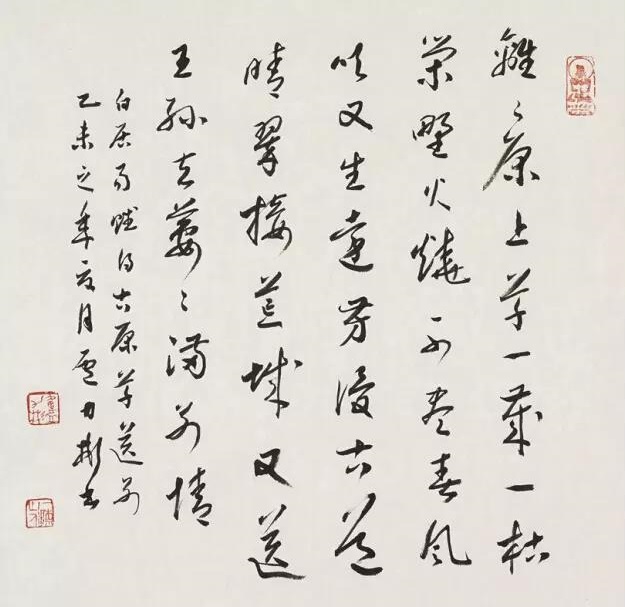 離々原上草一歲一枯
榮野火燒不盡春風
吹又生遠芳侵古道
晴翠接荒城又送
王孫去萋々滿別情
白居易賦得古原草送別
乙未之年六月盧力彬書